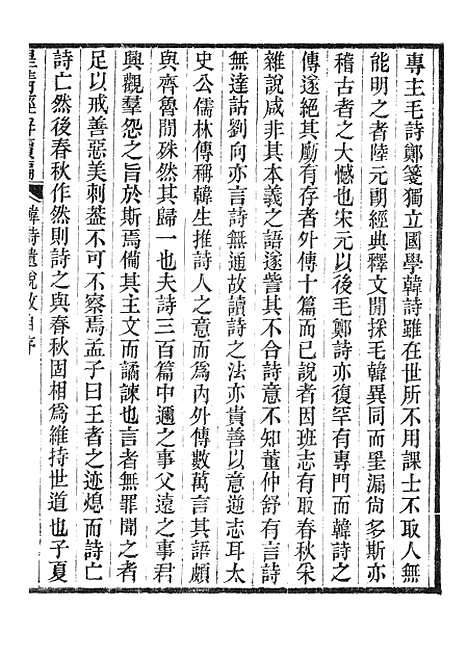 專主毛詩鄭箋獨立國學韓詩雖在世所不用課士不取人無
能明之者陸元朗經典釋文閒採毛韓異同而罣漏尙多斯亦
稽古者之大憾也宋元以後毛鄭詩亦復罕有專門而韓詩之
傳遂絕其勵有存者外傳十篇而已說者因班志有取春秋采
雜說咸非其本義之語遂訾其不合詩意不知董仲舒有言詩
無達詁劉向亦言詩無通故讀詩之法亦貴善以意逆志耳太
史公儒林傳稱韓生推詩人之意而爲內外傳數萬言其語頗
與齊魯閒殊然其歸一也夫詩三百篇中邇之事父遠之事君
興觀羣怨之旨於斯焉備其主文而譎諫也言者無罪聞之者
足以戒善惡美刺葢不可不察焉孟子曰王者之迹熄而詩亡
詩亡然後春秋作然則詩之與春秋固相爲維持世道也子夏
皇淸經解續編 韓詩遺說攷自序